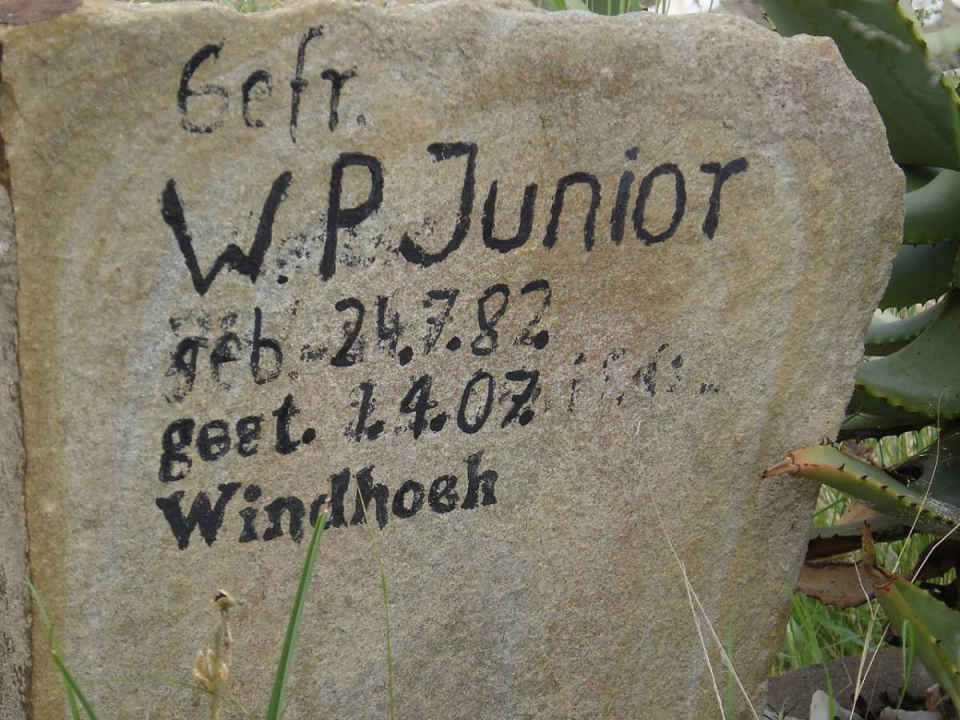 Gefr.
W. P. Junior
geb. 24.7.82.
gest. 1.4.07.
Windhoek